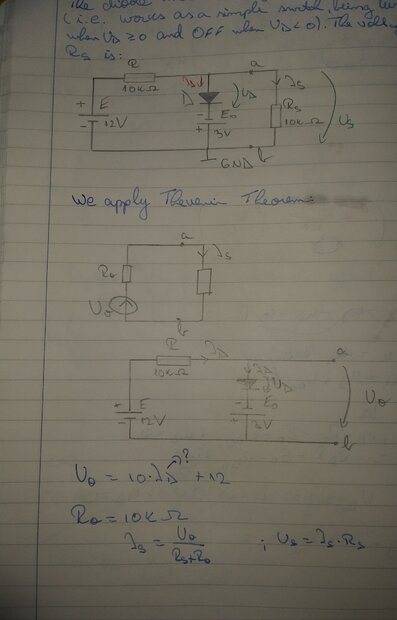 The diode
(i.e. works as a simple switch, being
when UD ≥ 0 and OFF when UD < 0). The
Rs is:
R
10kΩ
a
iD
is
+
E
-
12V
D
UD
-
E0
+
3V
Rs
10kΩ
Us
GND
b
We apply Thevenin Theorem:
a
is
R0
U0
b
R
10kΩ
iD
a
iD
UD
+
E
-
12V
-
E0
+
3V
U0
b
U0 = 10·iD + 12
?
R0 = 10kΩ
is = U0 / Rs+R0 ; Us = is · Rs